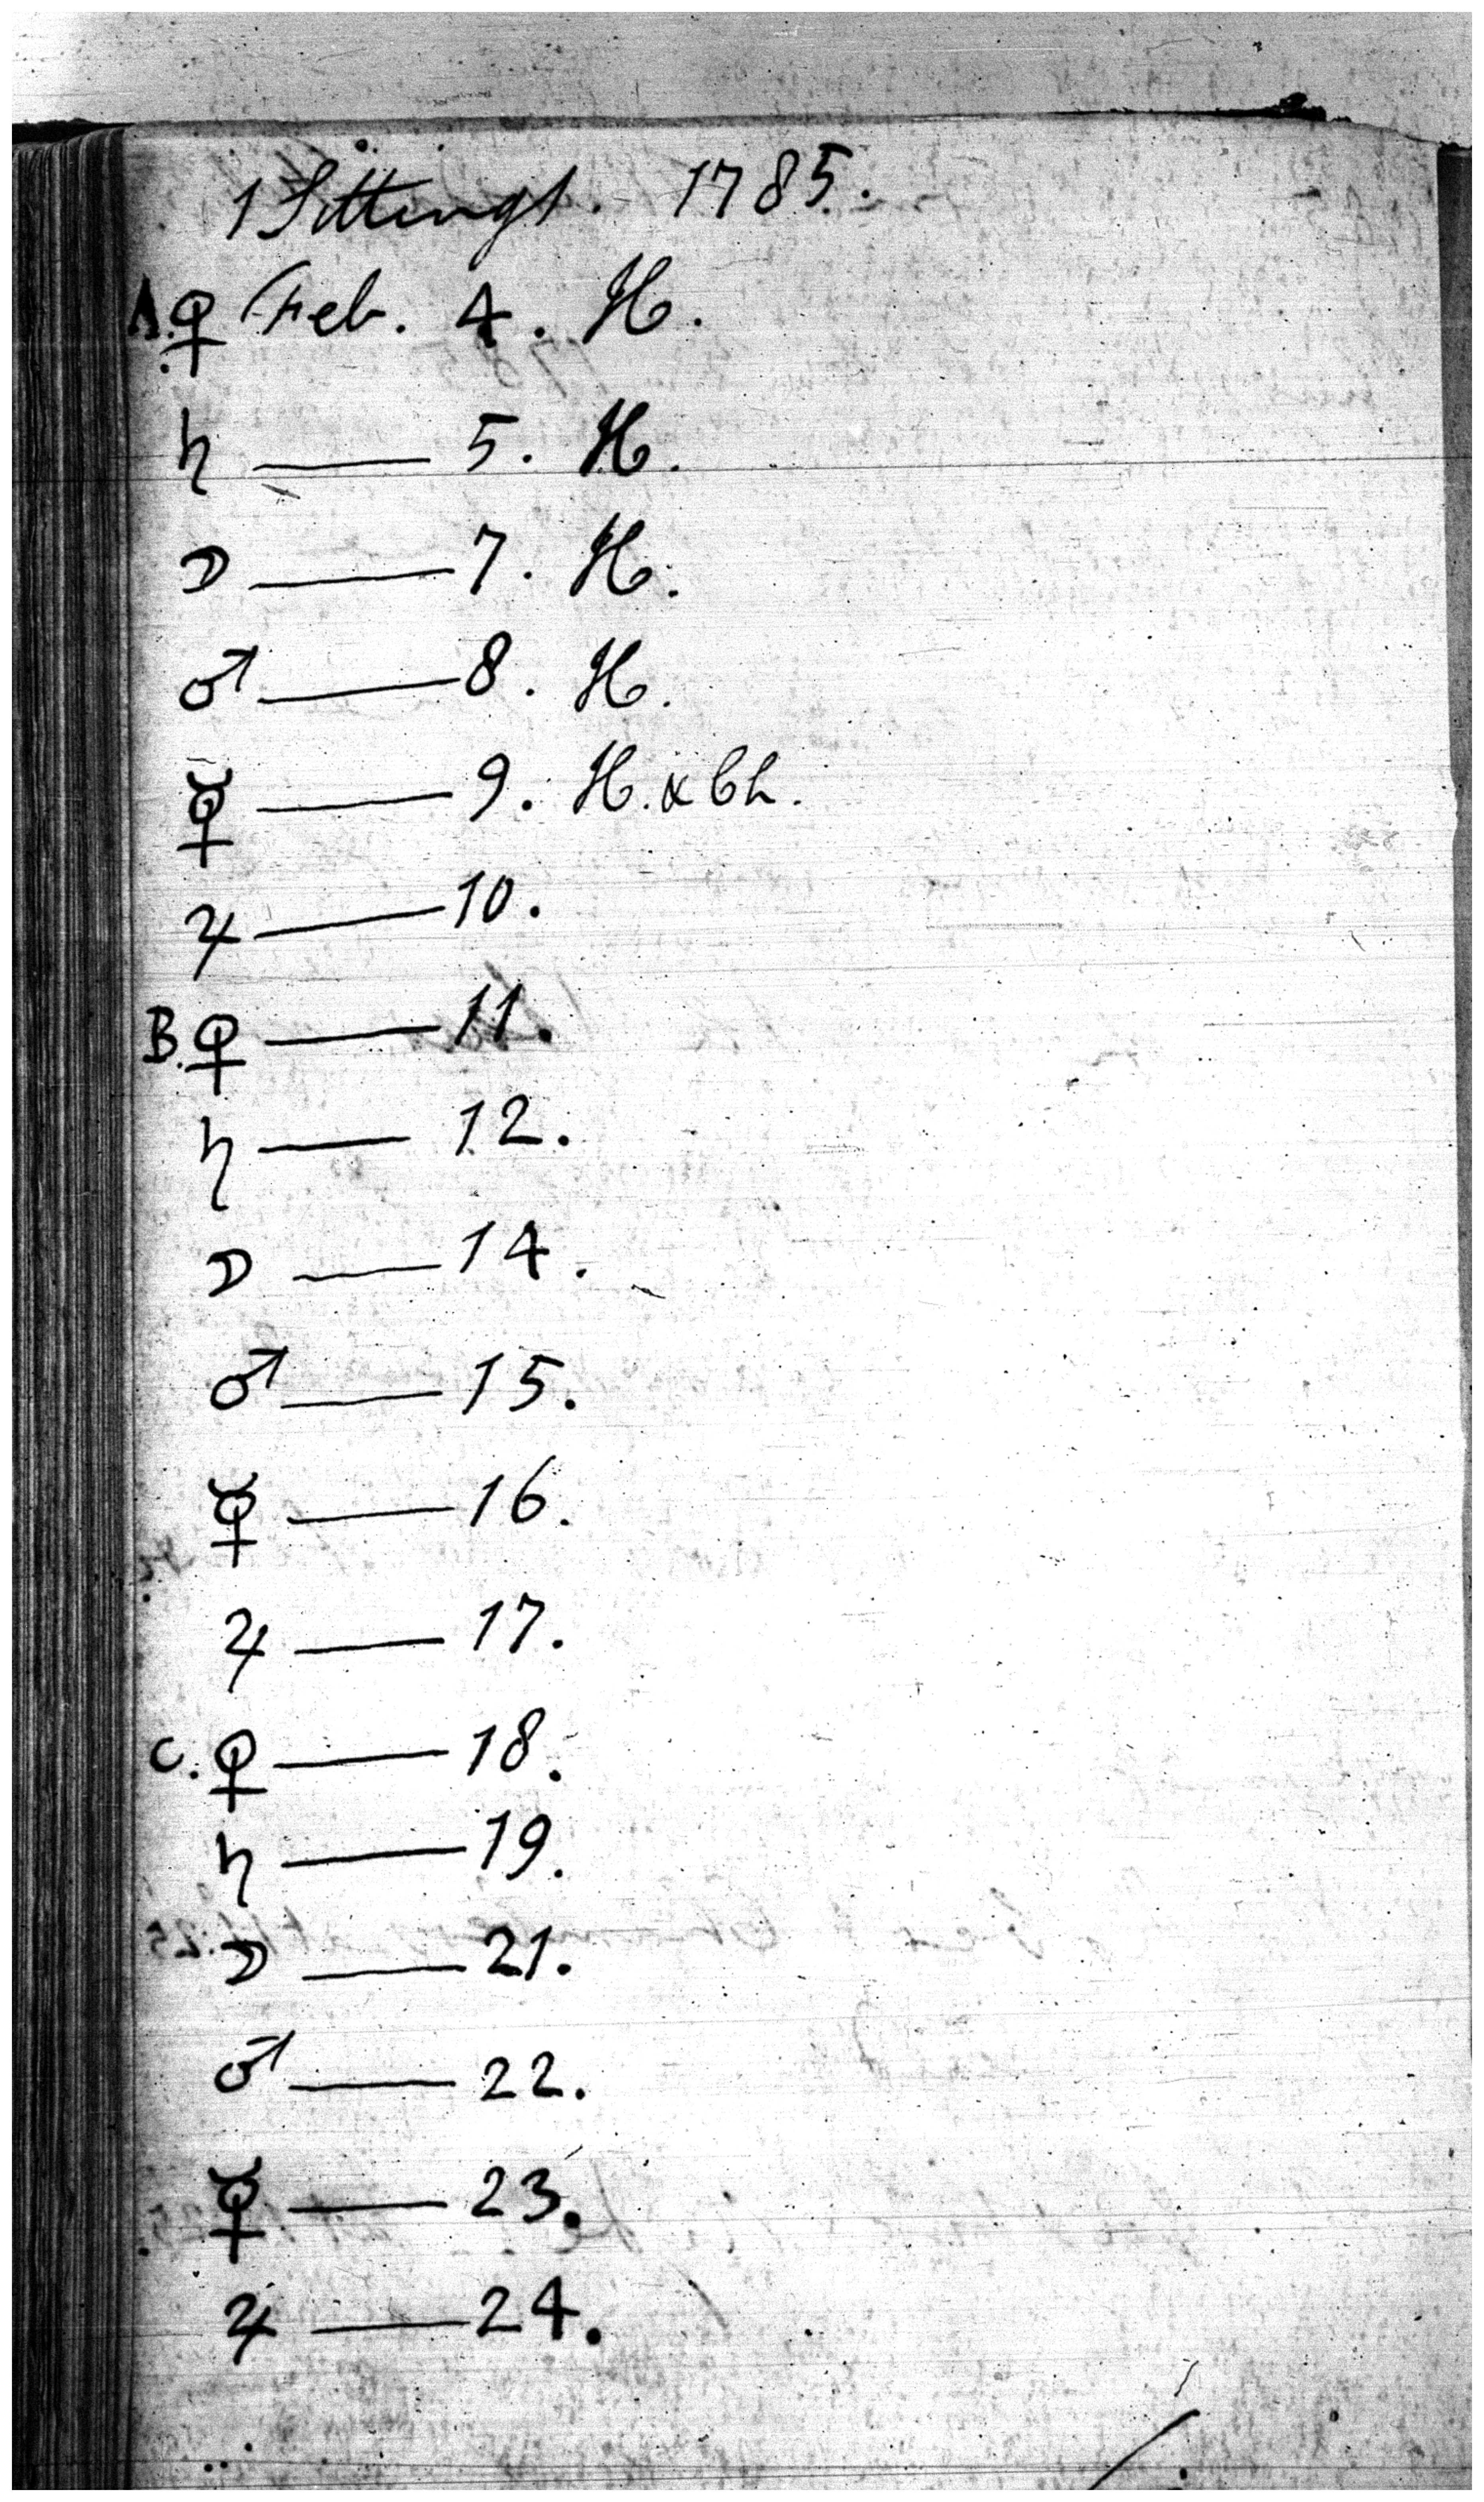 Sittings. 1785.
A. ♀ Feb. 4. H.
♄ —— 5. H.
☽ —— 7. H.
♂ —— 8. H.
☿ —— 9. H. & Ch.
♃ —— 10.
B. ♀ —— 11.
♄ —— 12.
☽ —— 14.
♂ —— 15.
☿ —— 16.
♃ —— 17.
C. ♀ —— 18.
♄ —— 19.
☽ —— 21.
♂ —— 22.
☿ —— 23.
♃ —— 24.